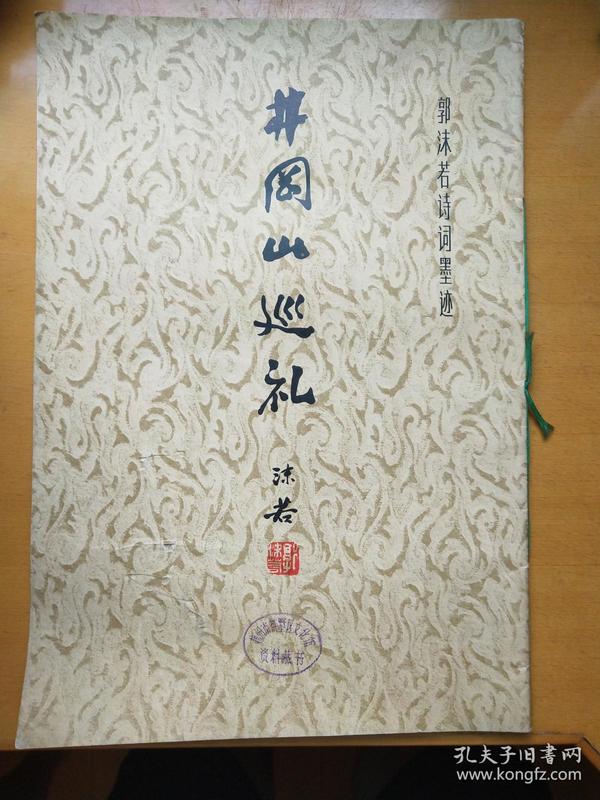 郭沫若诗词墨迹
井岡山巡礼
沫若
郭沫若
资料藏书
孔夫子旧书网
www.kongfz.com